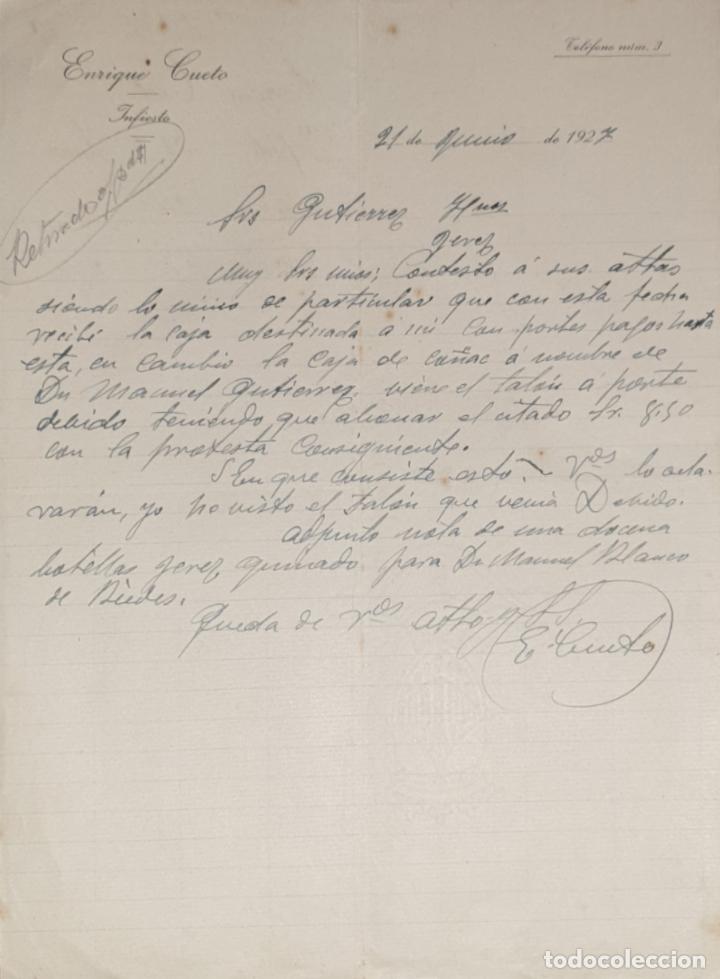 Enrique Cueto
Infiesto
Teléfono núm. 3
21 de Junio de 1927
Retirado
Srs Gutierrez Hnos
Jerez
Muy Srs mios; Contesto á sus attas
siendo lo único de particular que con esta fecha
recibí la caja destinada á mi con portes pagos hasta
esta, en cambio la caja de coñac á nombre de
Dn Manuel Gutierrez, viene el talón á porte
debido teniendo que abonar el citado Sr. 8,50
con la protesta consiguiente.
En que consiste esto. Vdes lo acla-
rarán, yo he visto el talón que venia Debido.
adjunto nota de una docena
botellas jerez quinado para Dn Manuel Blanco
de Biedes.
Queda de Vdes atto
E. Cueto
todocoleccion.net